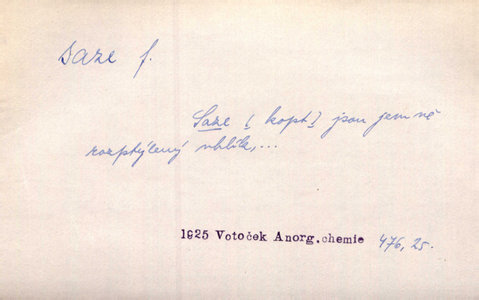 saze f.
Saze (kopt) jsou jemně
rozptýlený uhlík,...
1925 Votoček Anorg.chemie 476, 25.